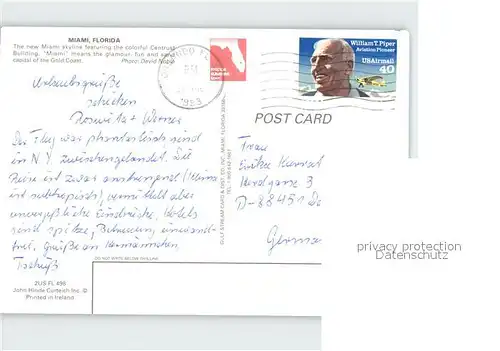 MIAMI, FLORIDA
The new Miami skyline featuring the colorful Centrust
Building. "Miami" means the glamour, fun and
capital of the Gold Coast. Photo: David Noble
William T. Piper
Aviation Pioneer
USAirmail
40
1993
POST CARD
Urlaubsgrüße
schicken
Roswitha + Werner
Der Flug war phantastisch, sind
in N.Y. zwischengelandet. Die
Reise ist zwar anstrengend (Miami
ist subtropisch), vermittelt aber
unvergeßliche Eindrücke. Hotels
sind spitze, Betreuung einwand-
frei. Grüße an
Tschüß
Frau
3
D-88451 De
Germa
GULF STREAM CARD & DIST. CO., INC. MIAMI, FLORIDA
DO NOT WRITE BELOW THIS LINE
2US FL 498
John Hinde Curteich Inc. ©
Printed in Ireland
privacy protection
Datenschutz